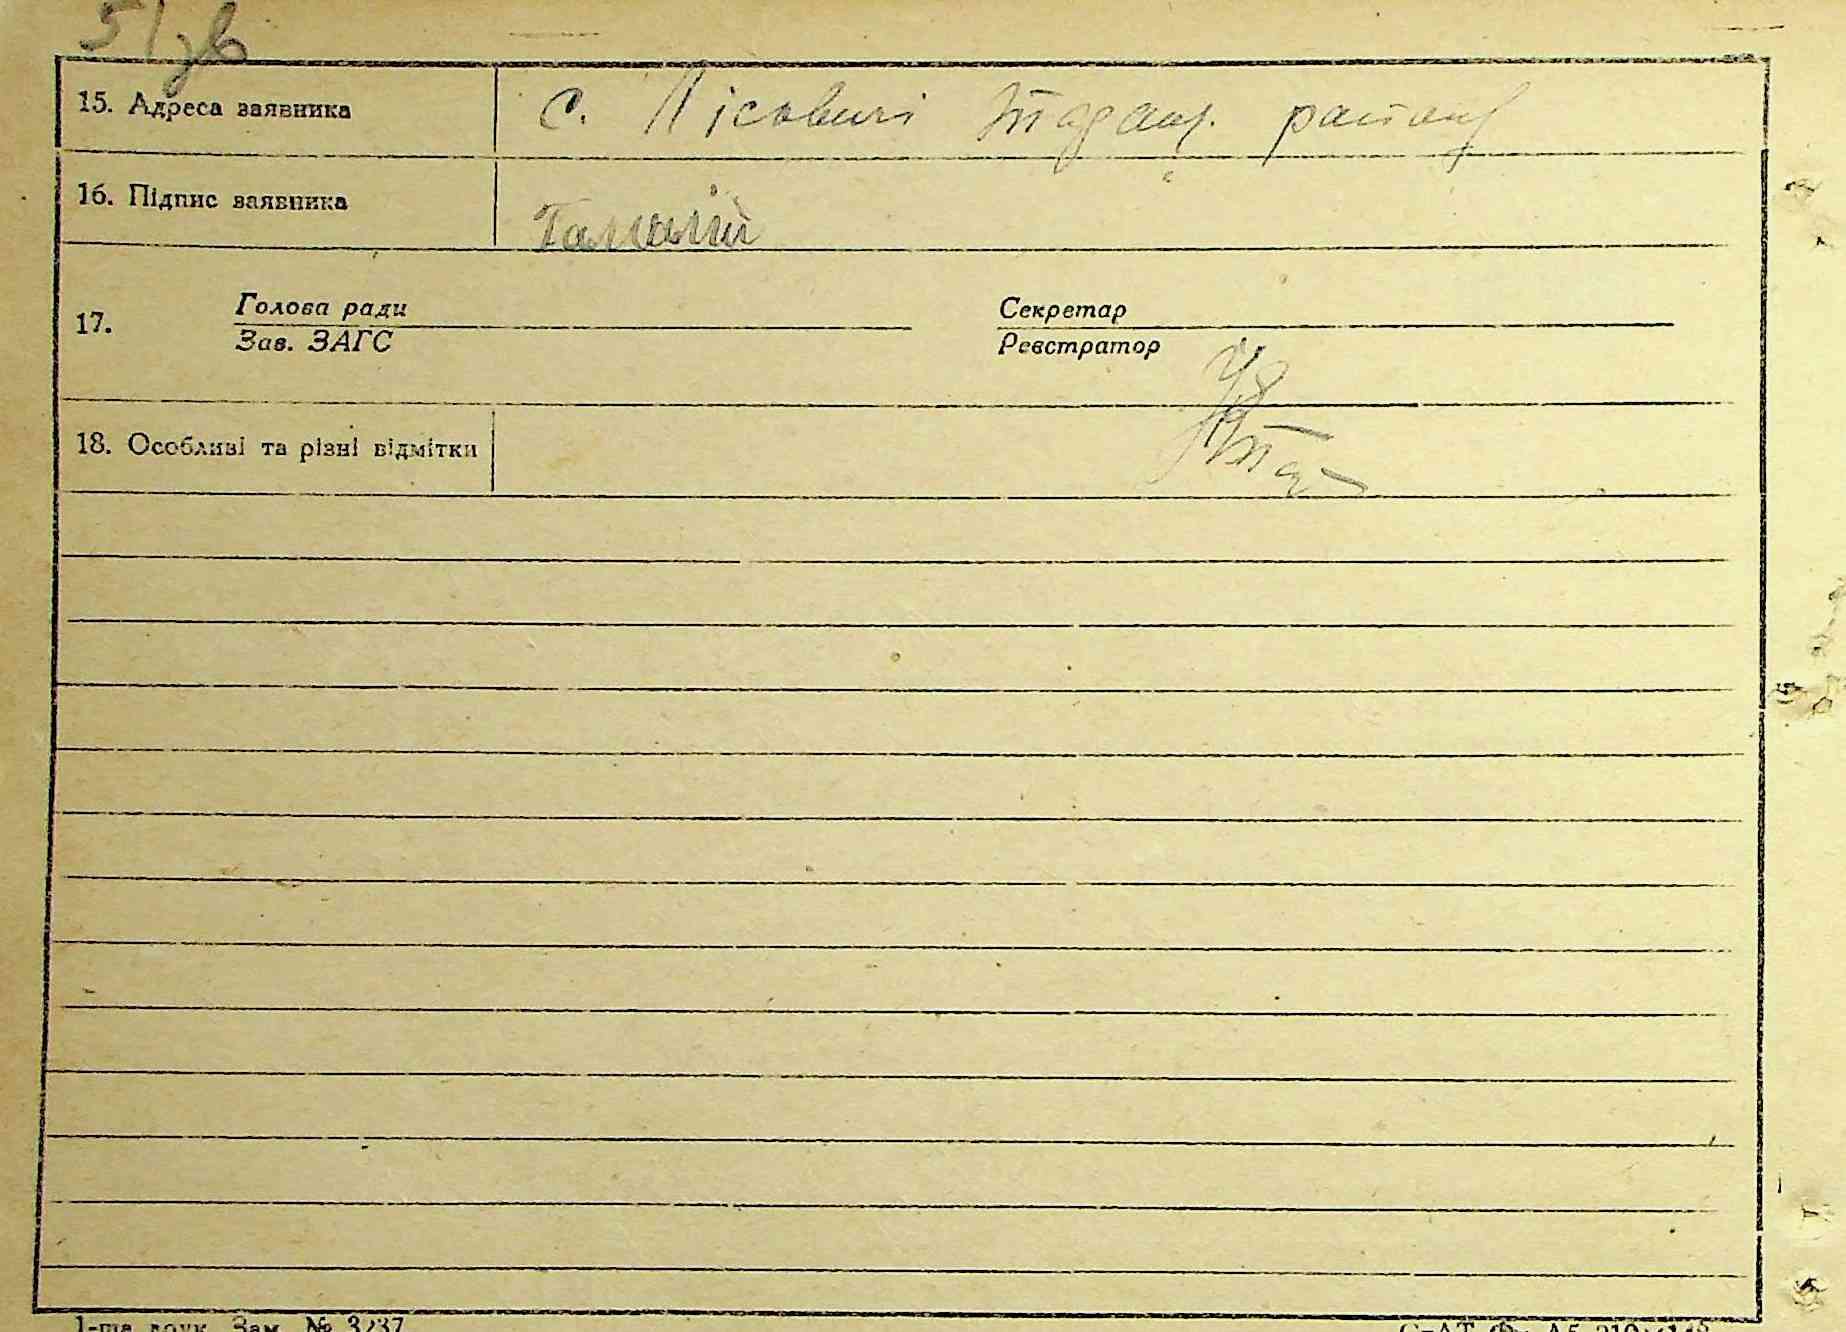 51 зв
15. Адреса заявника с. Лісовичі району
16. Підпис заявника
17. Голова ради Секретар
Зав. ЗАГС Реєстратор
18. Особливі та різні відмітки
1-ша друк. Зам. № 3237